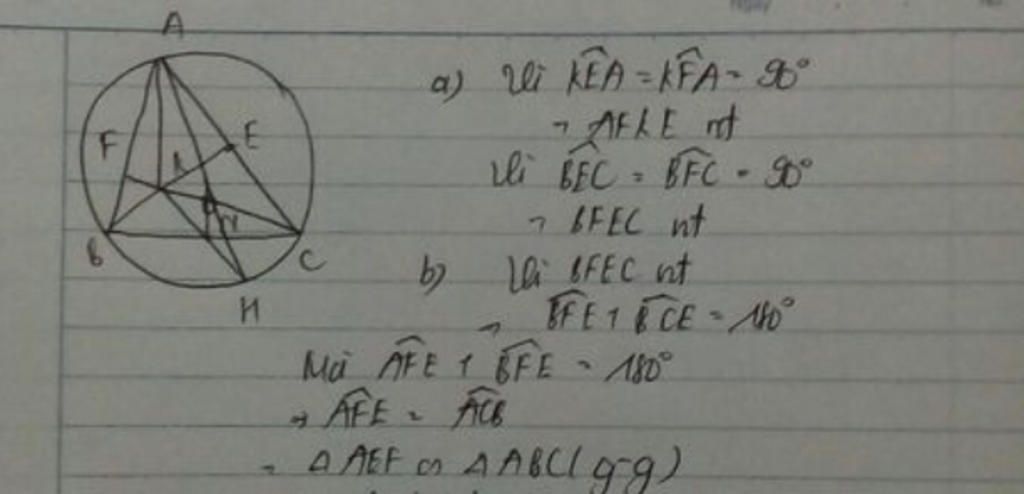 A
F
E
K
B
C
H
a) Vì KÊA = KF̂A = 90°
→ AFKE nt
Vì BÊC = BF̂C = 90°
→ BFEC nt
b) Vì BFEC nt
→ BF̂E + BĈE = 180°
Mà AF̂E + BF̂E = 180°
→ AF̂E = AĈB
→ Δ AEF ∽ Δ ABC (g-g)